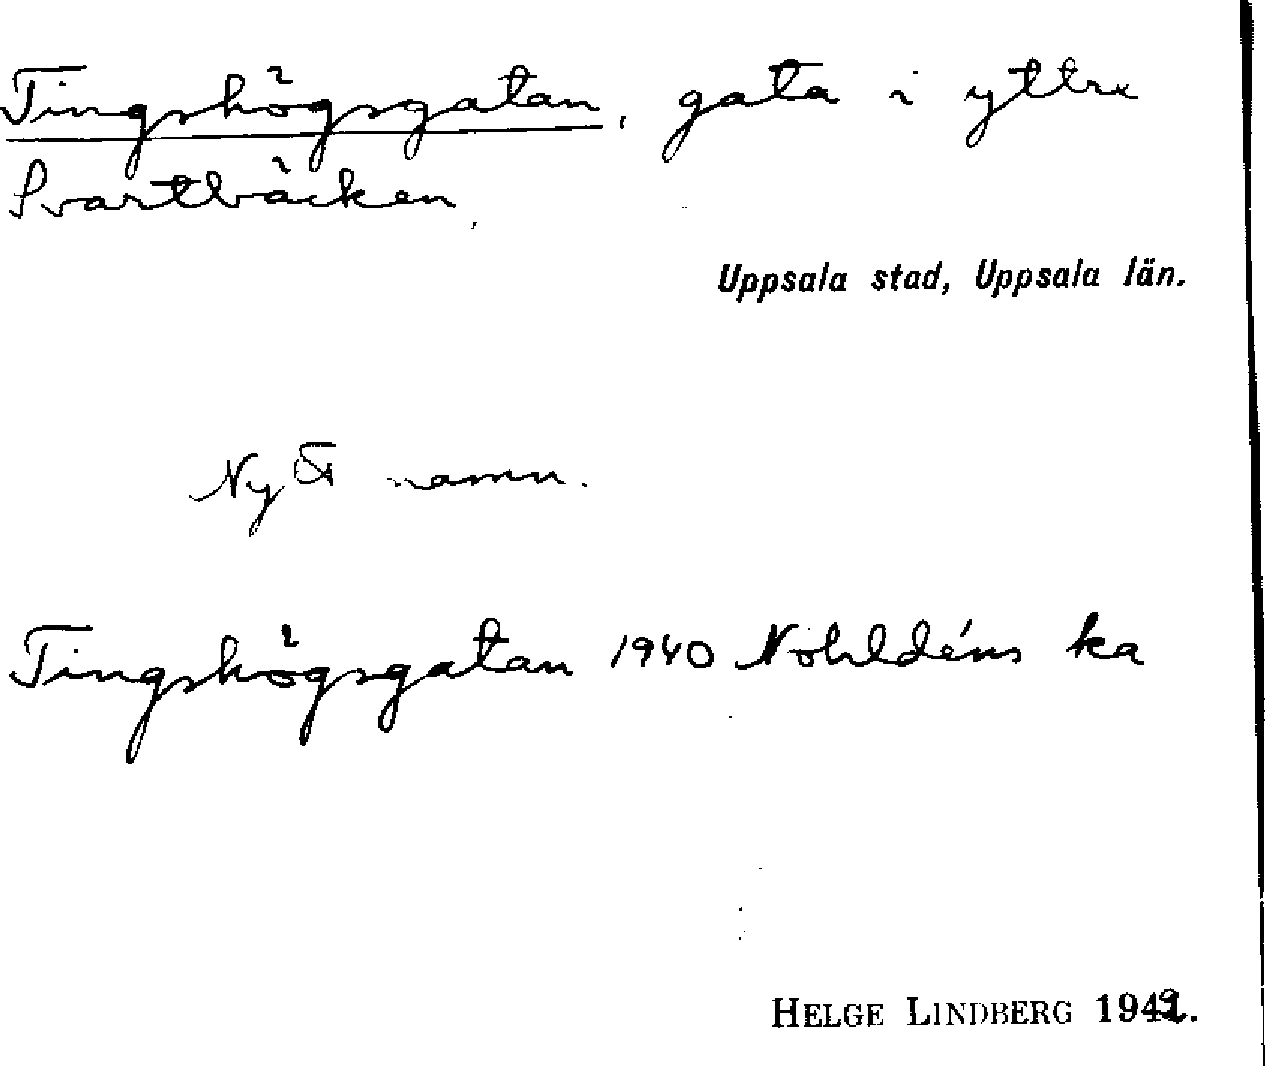 Tingshögsgatan, gata i yttre
Svartbäcken,
Uppsala stad, Uppsala län.
Nytt namn.
Tingshögsgatan 1940 Nohldéns ka
HELGE LINDBERG